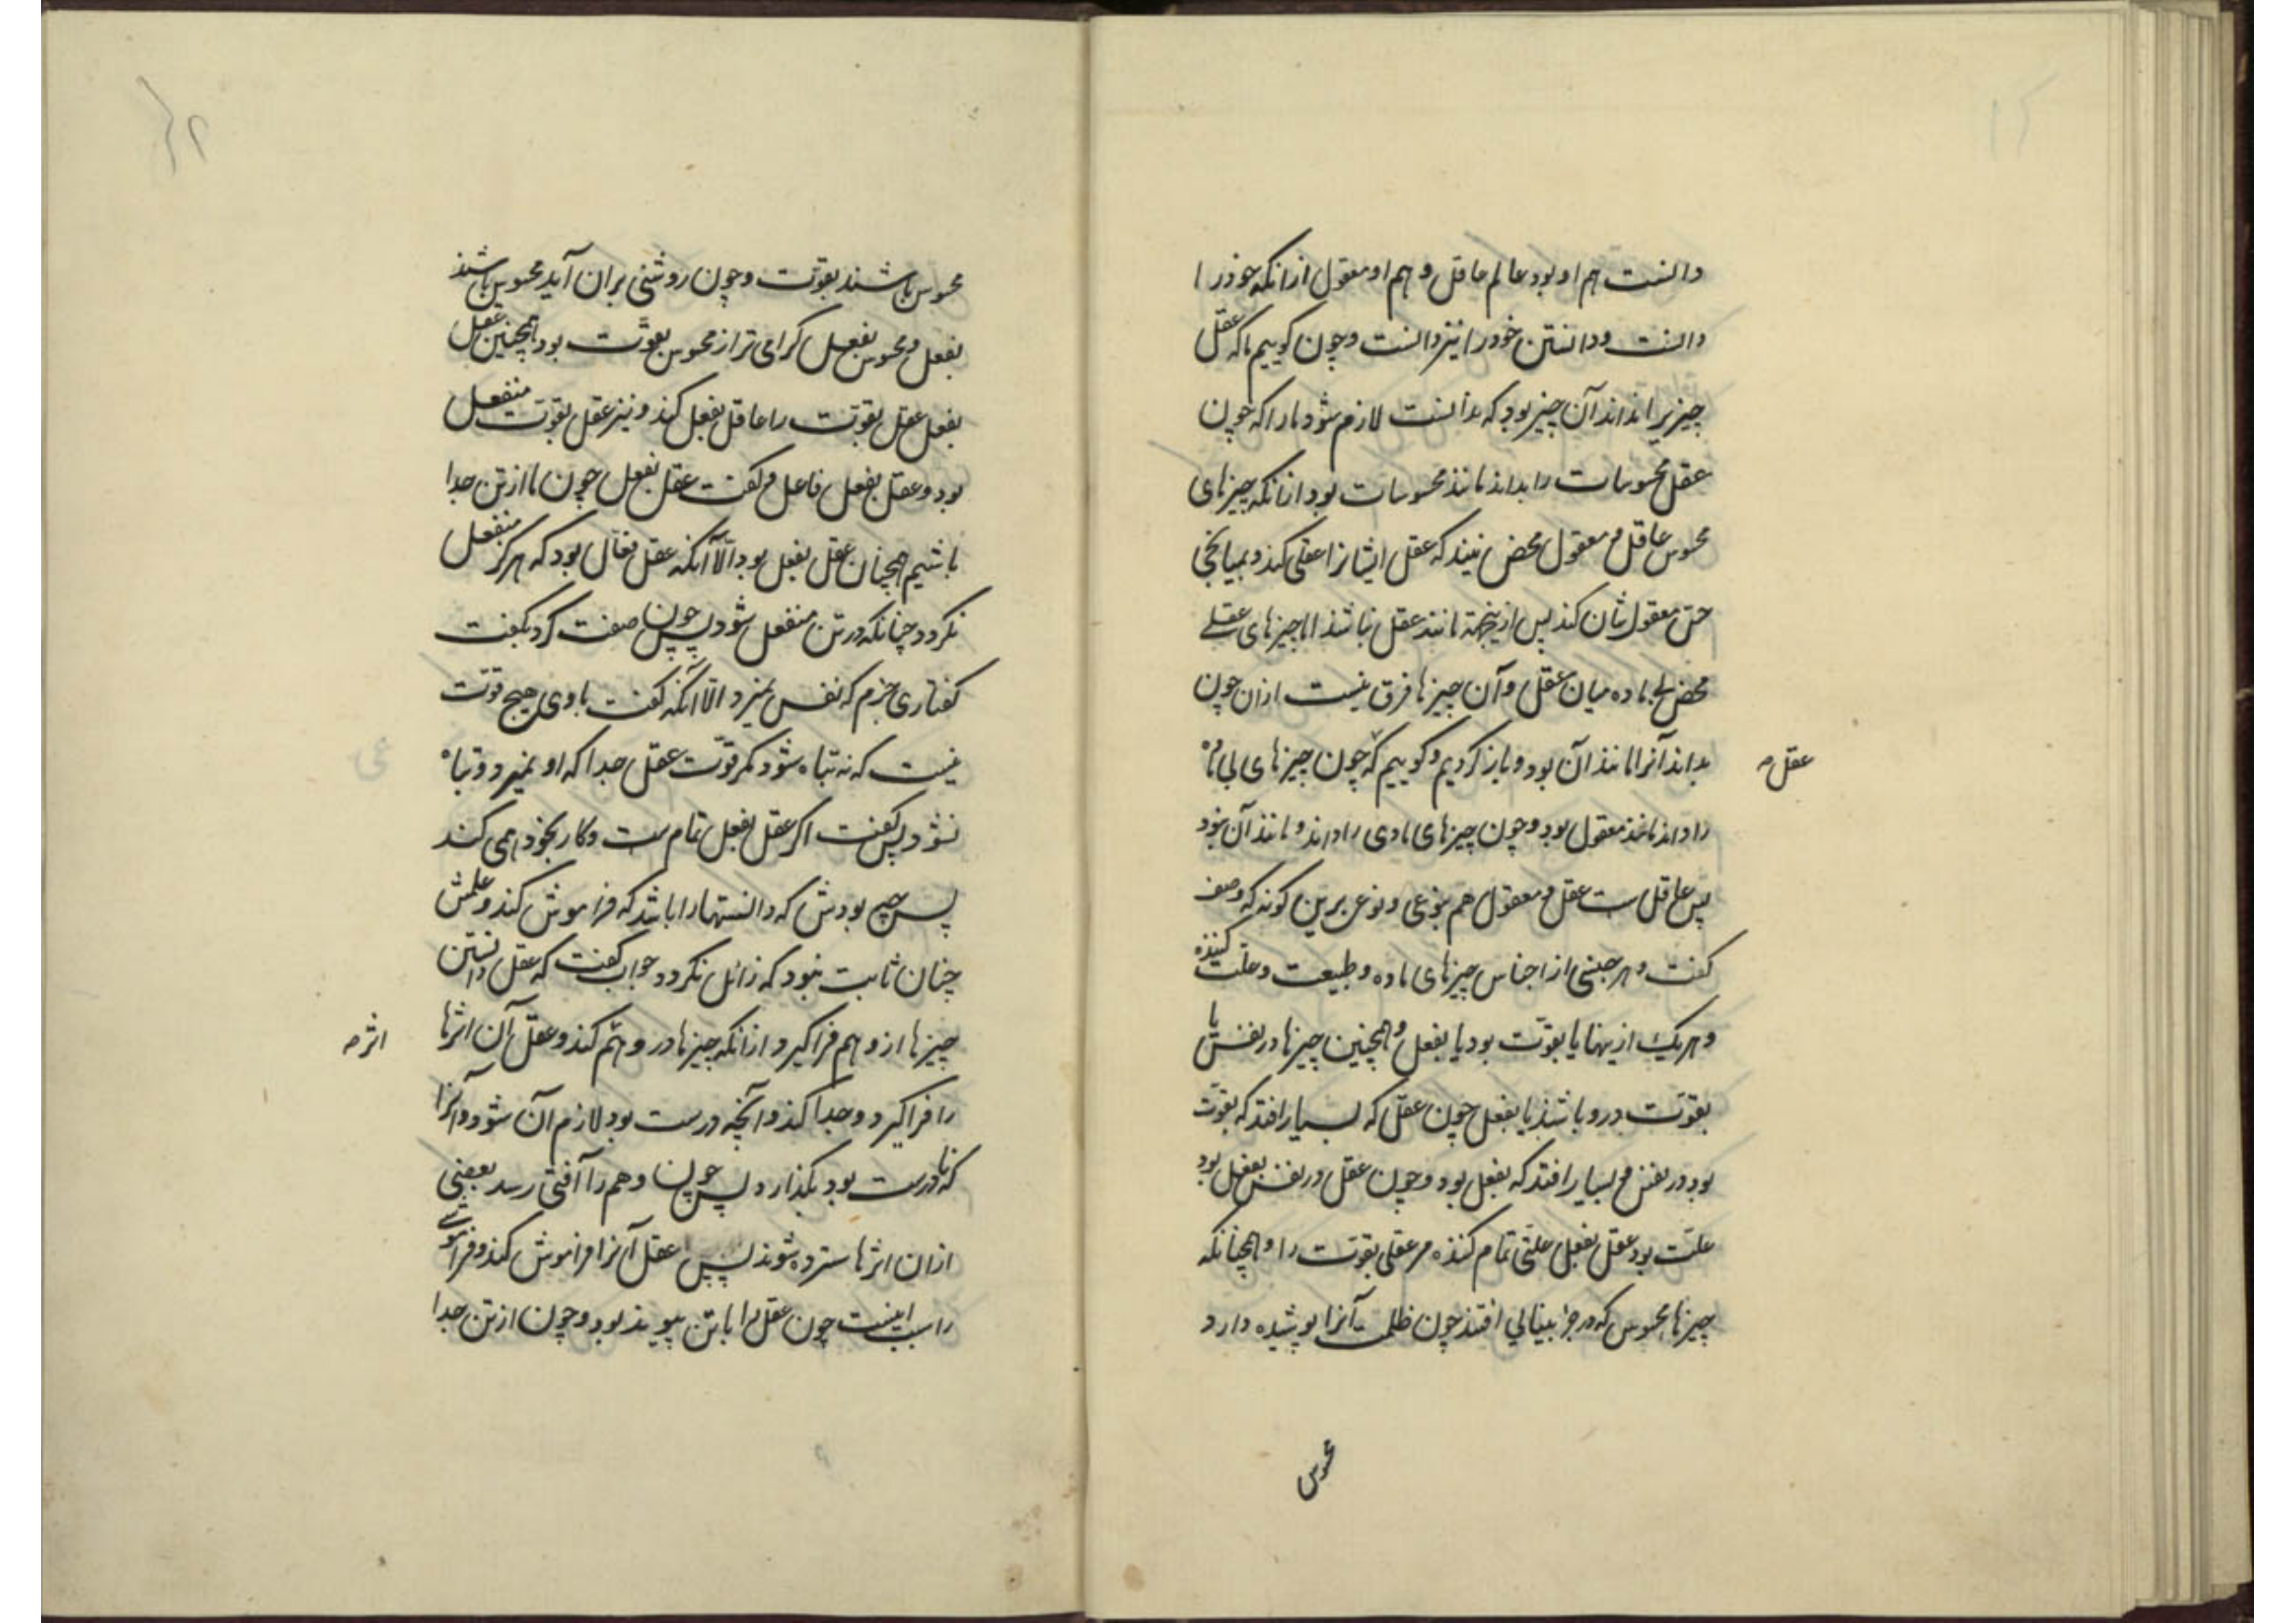 دانست هم او بود عالم عاقل و هم او معقول ازانکه خود را
دانست ودانستن خود را نیز دانست وچون گوییم ما که عقل
چیزیرا نداند آن چیز بود که بدانست لازم شود مارا که چون
عقل محسوسات را بداند مانند محسوسات بود ازانکه چیزهای
محسوس عاقل و معقول محض نیند که عقل ایشانرا عقلی کند و بمیانجی
حس معقول شان کند پس ازینجهة مانند عقل نباشد اما چیزهای عقلے
محض بی ماده میان عقل و آن چیزها فرق نیست ازان چون
بداند آنرا مانند آن بود و باز کردیم وگوییم که چون چیزهای بی ماده
عقل
را داند مانند معقول بود وچون چیزهای مادی را داند و مانند آن نبود
پس عاقل ست عقل و معقول هم بنوعی ونوع برین گونه که وصف
گفت و هر جنسی از اجناس چیزهای ماده و طبیعت و علت کننده
و هر یک ازینها یا بقوّت بود یا بفعل و همچنین چیزها در نفس یا
بقوّت درو باشند یا بفعل چون عقل که بسیار افتد که بقوّت
بود در نفس و بسیار افتد که بفعل بود وچون عقل در نفس بفعل بود
علّت بود عقل بفعل علّتی تمام کننده مر عقلی بقوّت را و همچنانکه
چیزهای محسوس که در جز بینایی افتند چون ظلمت آنرا پوشیده دارد
محسوس
محسوس باشند بقوّت وچون روشنی بران آید محسوس باشند
بفعل و محسوس بفعل گرامی تر از محسوس بقوّت بود همچنین عقل
بفعل عقل بقوّت را عاقل بفعل کند و نیز عقل بقوّت منفعل
بود و عقل بفعل فاعل و گفت عقل بفعل چون ما از تن جدا
باشیم همچنان عقل بفعل بود الّا آنکه عقل فعّال بود که هرگز منفعل
نگردد چنانکه در تن منفعل شود پس چون صفت کرد بگفت
گفتاری بجزم که نفس نمیرد الّا آنکه گفت با وی هیچ قوّت
نیست که نه تباه شود مگر قوّت عقل جدا که او نمیرد و تباه
نشود پس گفت اگر عقل بفعل تمام ست وکار بخود همی کند
پس چه بودش که دانستها را باشد که فراموش کند و علمش
چنان ثابت نبود که زائل نگردد جواب گفت که عقل دانستن
چیزها از وهم فرا گیرد ازانکه چیزها در وهم کند و عقل آن اثرها
اثر
را فرا گیرد و جدا کند و آنچه درست بود لازم آن شود و آنرا
که نادرست بود بگذارد پس چون وهم را آفتی رسد بعضی
ازان اثرها سترده شوند پس عقل آنرا فراموش کند و فراموشے
را سبب اینست چون عقل را با تن پیوند بود وچون از تن جدا